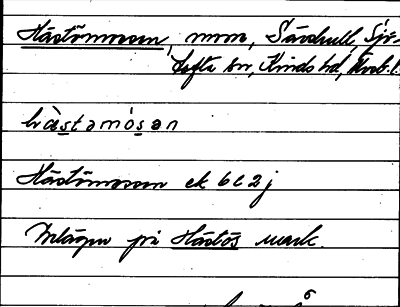 Hästömossen, mosse, Särshult, Sjö-
tofta sn, Kinds hd, Älvsb. l.
hæ̀stəmòsən
Hästömossen ek 6C2j
Belägen på Hästös mark.